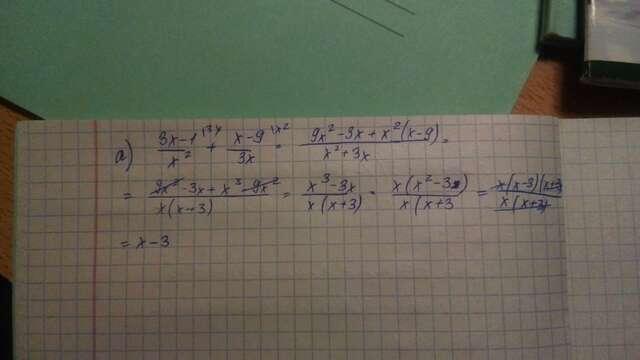 а) (3x-1)/x² + (x-9)/3x = (9x²-3x+x²(x-9))/(x²+3x) =
= (3x²-3x+x³-9x²)/(x(x+3)) = (x³-3x)/(x(x+3)) = (x(x²-3))/(x(x+3) = (x(x-3)(x+3))/(x(x+3))
= x-3